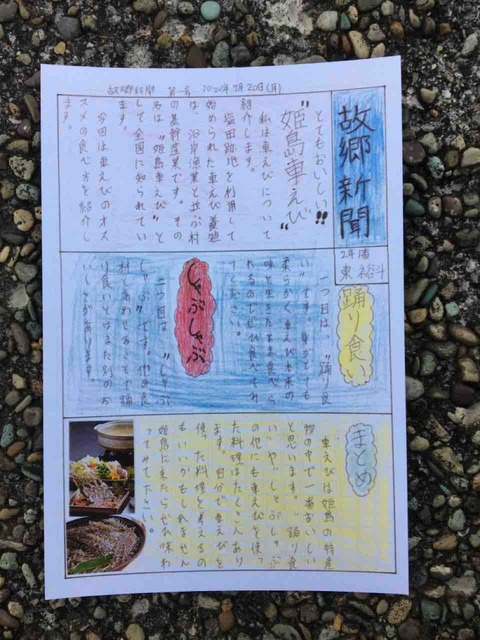 故郷新聞 第一号 2020年7月20日(月)
故郷新聞
2年
東 裕斗
とてもおいしい!!
"姫島車えび"
私は車えびについて
紹介します。
塩田跡地を利用して
始められた車えび養殖
は、沿岸漁業と並ぶ村
の基幹産業です。その
名は"姫島車えび"と
して全国に知られてい
ます。
今回は車えびのオス
スメの食べ方を紹介し
ます。
踊り食い
一つ目は、"踊り食
い"です。身がとても
柔らかく車えび本来の
味を生きたまま食べら
れるのでぜひ食べてみ
てください。
しゃぶしゃぶ
二つ目は、"しゃぶ
しゃぶ"です。他の食
材とあわせることで踊
り食いとはまた別のお
いしさがあります。
まとめ
車えびは姫島の特産
物の中で一番おいしい
と思います。"踊り食
い"や"しゃぶしゃぶ"
の他にも車えびを使っ
た料理はたくさんあり
ます。自分で車えびを
使った料理を考えるの
もいいかもしれません。
姫島に来たらぜひ味わ
ってみて下さい。